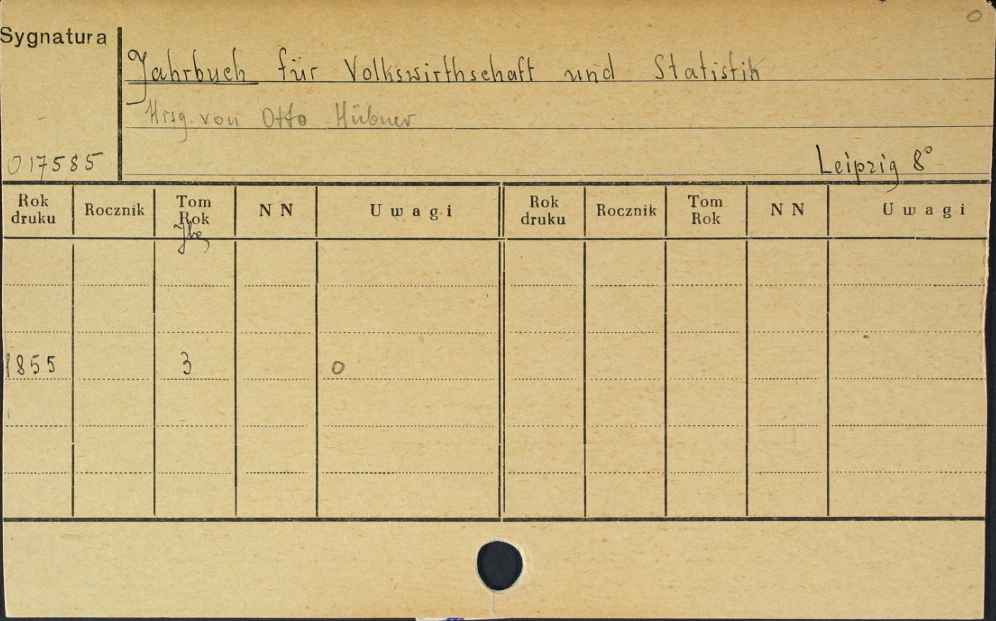 0
Sygnatura
Jahrbuch für Volkswirthschaft und Statistik
Hrsg. von Otto Hübner
017585
Leipzig 8°
Rok druku Rocznik Tom Rok NN Uwagi Rok druku Rocznik Tom Rok NN Uwagi
Jhg
1855 3 0